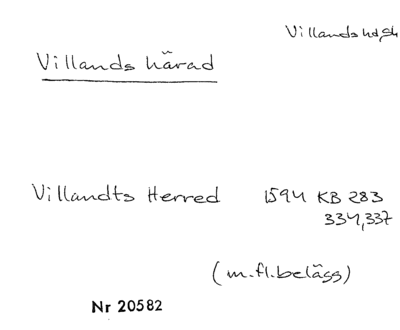 Villands hd, Sk
Villands härad
Villandts Herred 1594 KB 283
334,337
(m.fl. belägg)
Nr 20582